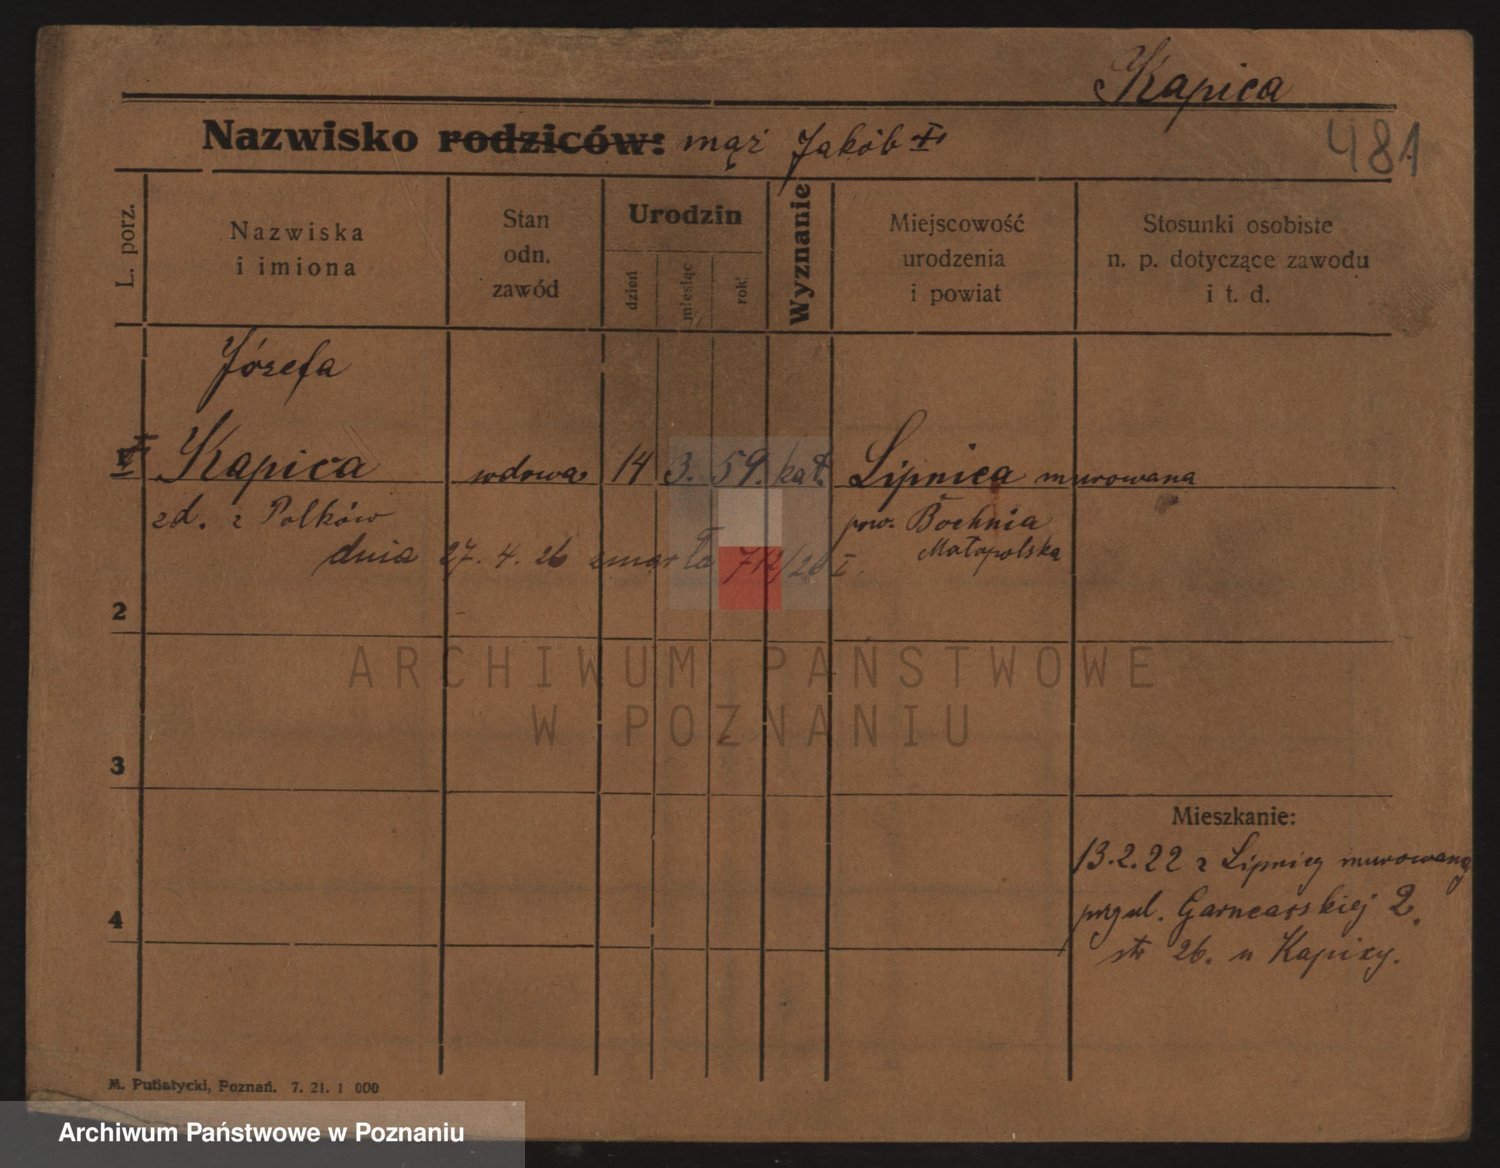 Kapica
Nazwisko rodziców: mąż Jakób
481
L. porz.
Nazwiska
i imiona
Stan
odn.
zawód
Urodzin
dzień
miesiąc
rok
Wyznanie
Miejscowość
urodzenia
i powiat
Stosunki osobiste
n. p. dotyczące zawodu
i t. d.
Józefa
Kapica wdowa 14 3. 59. kat. Lipnica murowana
zd. z Polków pow. Bochnia
Małopolska
dnia 27. 4. 26 zmarła 712/26 I.
2
ARCHIWUM PAŃSTWOWE
W POZNANIU
3
Mieszkanie:
13.2.22 z Lipnicy murowanej
przy ul. Garncarskiej 2.
4
str 26. u Kapicy.
M. Putiatycki, Poznań. 7. 21. 1 000
Archiwum Państwowe w Poznaniu